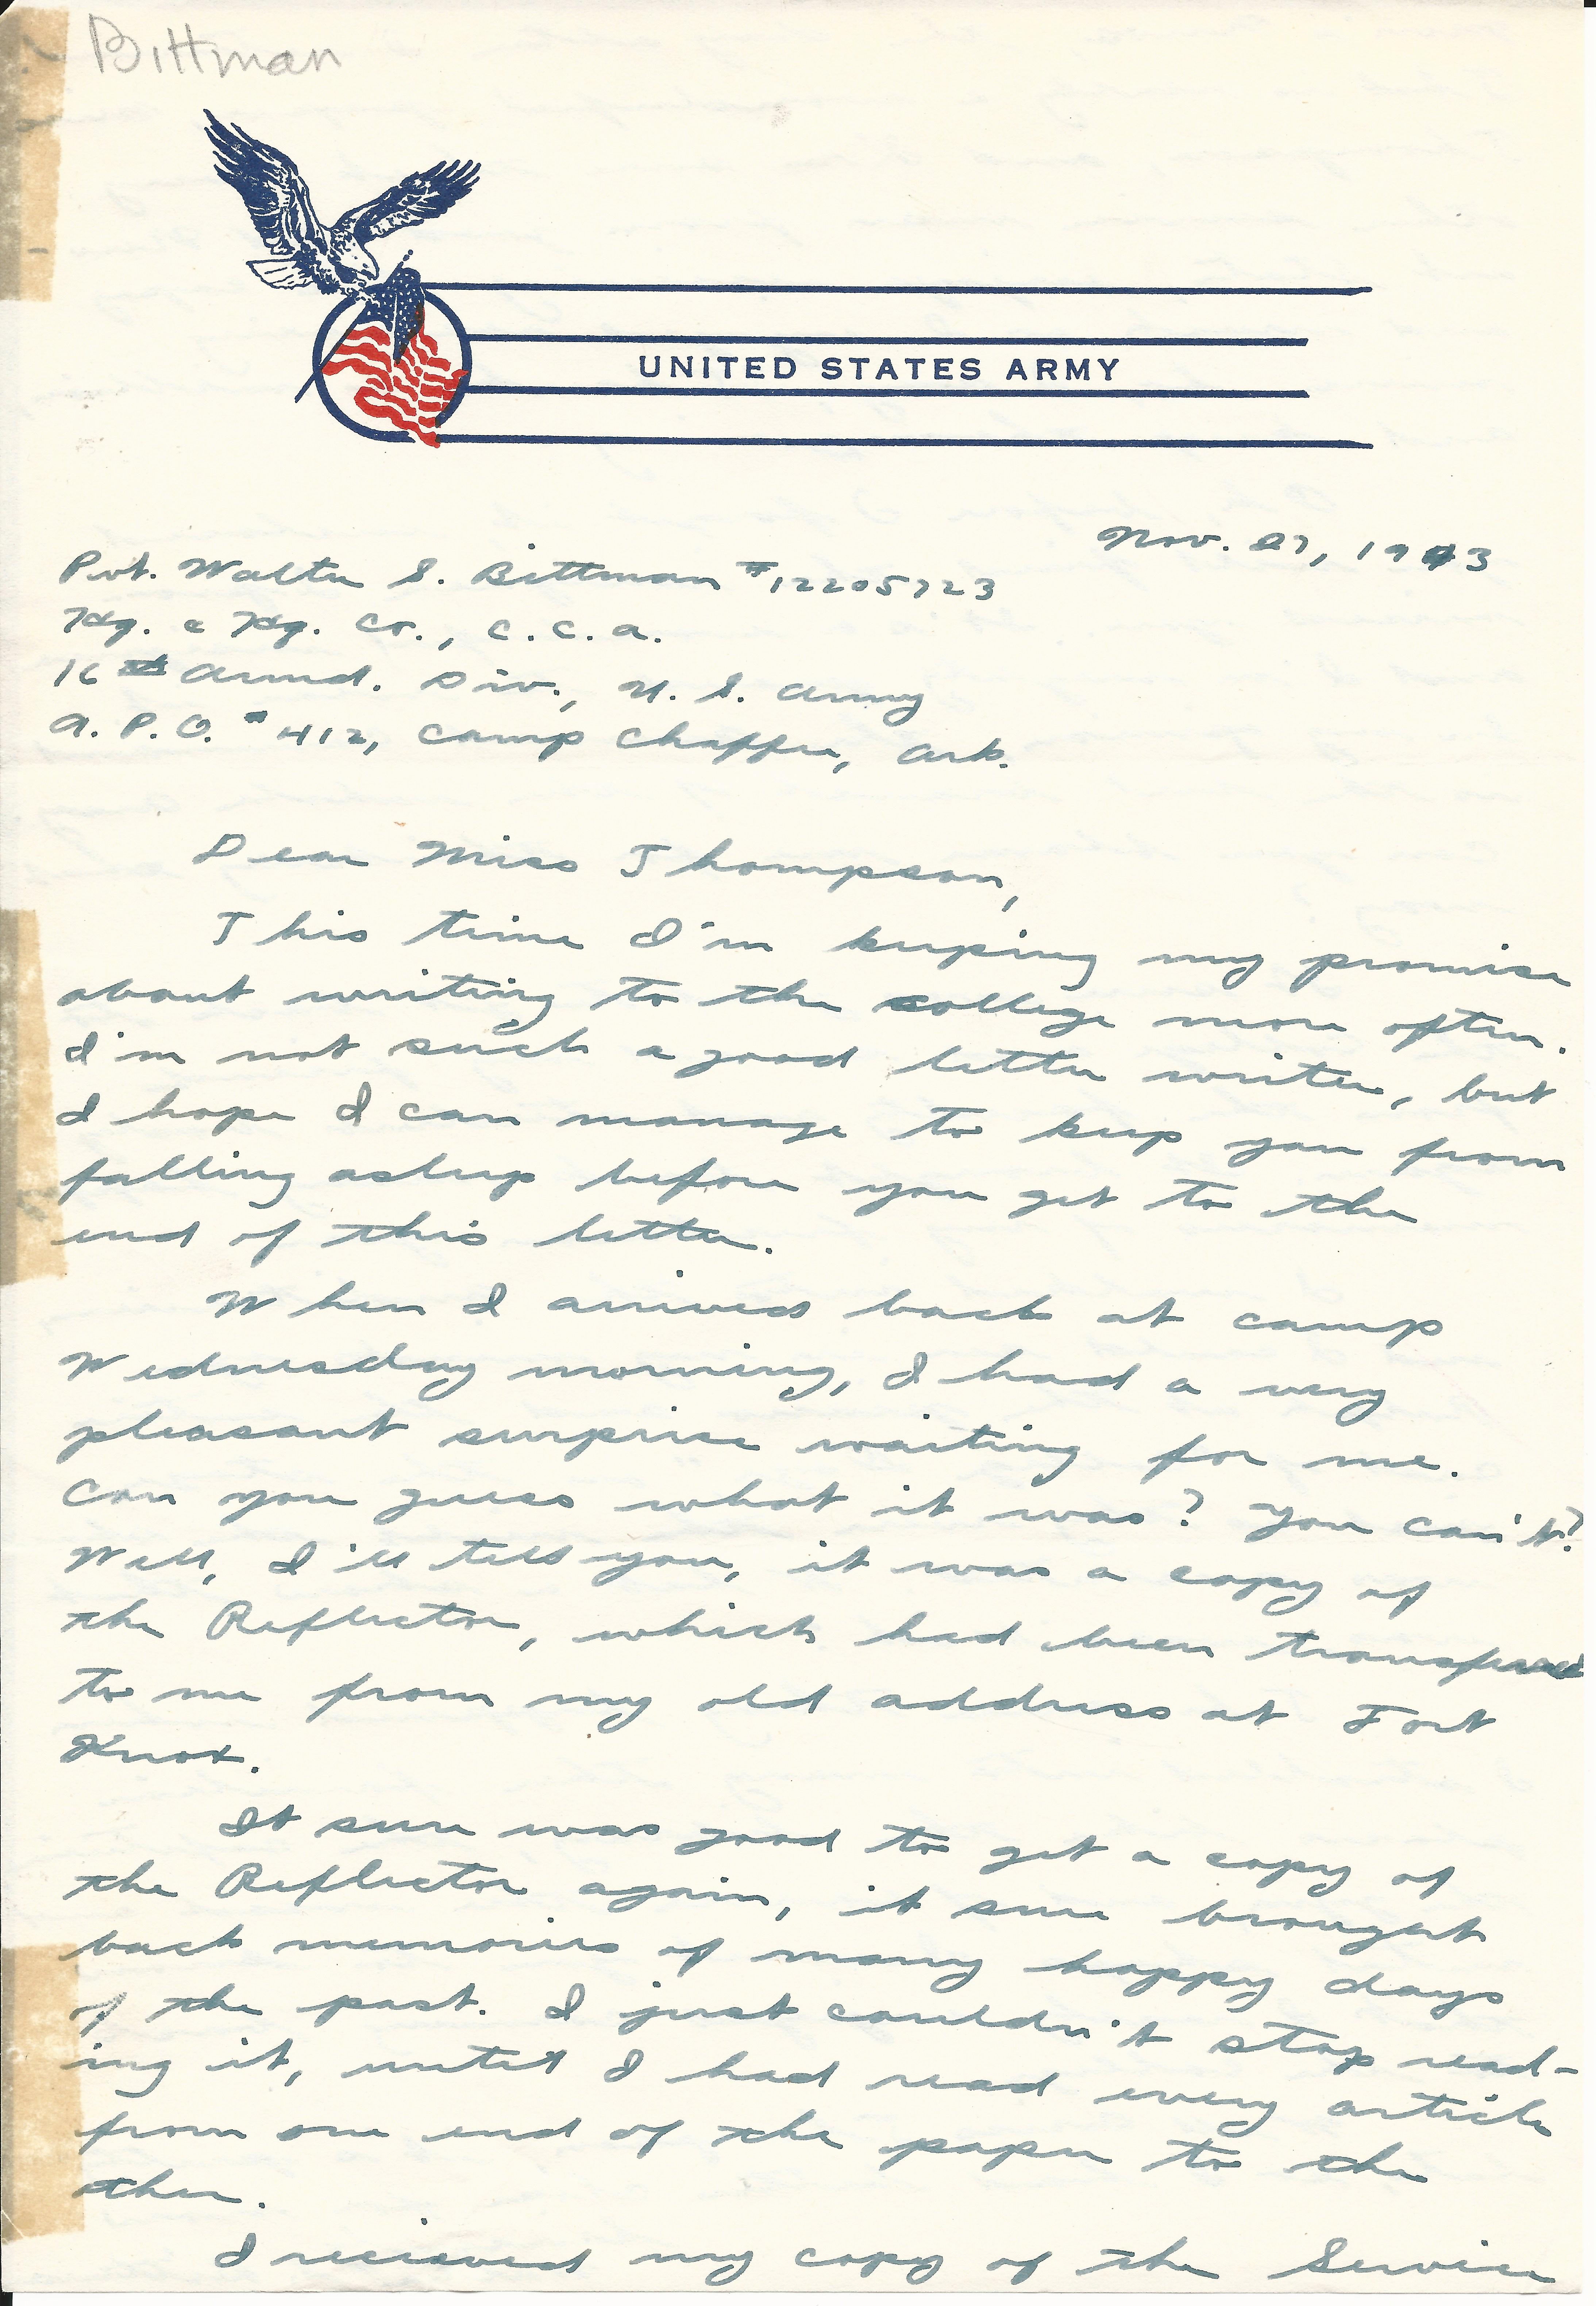 Bittman
UNITED STATES ARMY
Nov. 27, 1943
Pvt. Walter S. Bittman #12205723
Hq. & Hq. Co., C.C.A.
16th Armd. Div., U. S. Army
A. P. O. #412, Camp Chaffee, Ark.
Dear Miss Thompson,
This time I'm keeping my promise
about writing to the college more often.
I'm not such a good letter writer, but
I hope I can manage to keep you from
falling asleep before you get to the
end of this letter.
When I arrived back at camp
Wednesday morning, I had a very
pleasant surprise waiting for me.
Can you guess what it was? You can't?
Well, I'll tell you, it was a copy of
the Reflector, which had been transferred
to me from my old address at Fort
Knox.
It sure was good to get a copy of
the Reflector again, it sure brought
back memories of many happy days
of the past. I just couldn't stop read-
ing it, until I had read every article
from one end of the paper to the
other.
I recieved my copy of the Service